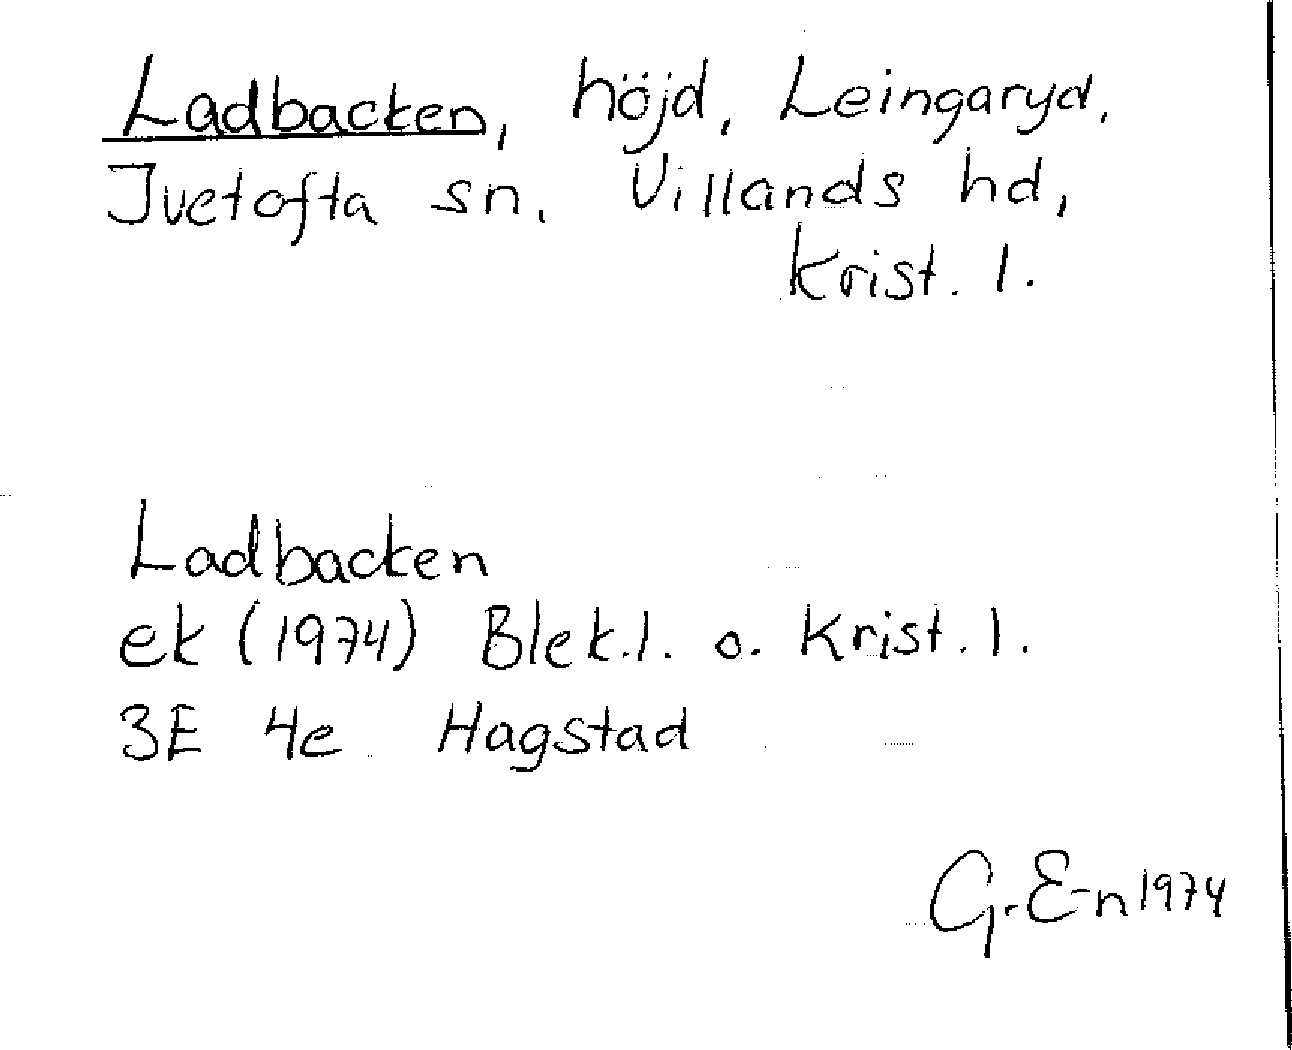 Ladbacken, höjd, Leingaryd,
Ivetofta sn. Villands hd,
Krist. l.
Ladbacken
ek (1974) Blek.l. o. Krist. l.
3E 4e Hagstad
G. E-n 1974